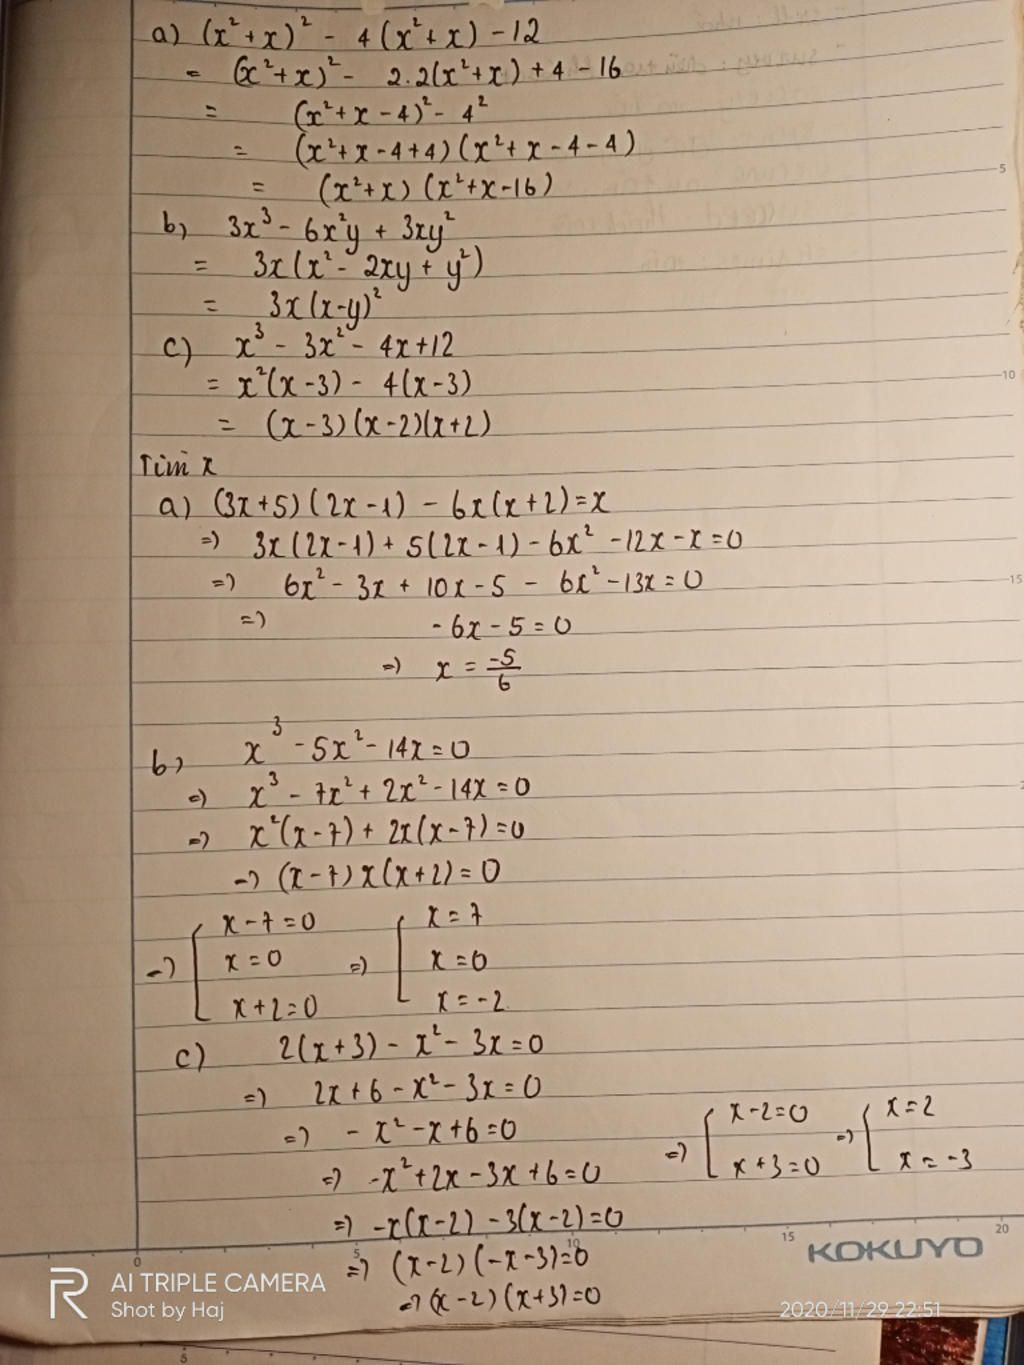 a) (x² + x)² - 4(x² + x) - 12
= (x² + x)² - 2.2(x² + x) + 4 - 16
= (x² + x - 4)² - 4²
= (x² + x - 4 + 4)(x² + x - 4 - 4)
= (x² + x)(x² + x - 16)
b) 3x³ - 6x²y + 3xy²
= 3x(x² - 2xy + y²)
= 3x(x - y)²
c) x³ - 3x² - 4x + 12
= x²(x - 3) - 4(x - 3)
= (x - 3)(x - 2)(x + 2)
Tìm x
a) (3x + 5)(2x - 1) - 6x(x + 2) = x
=) 3x(2x - 1) + 5(2x - 1) - 6x² - 12x - x = 0
=) 6x² - 3x + 10x - 5 - 6x² - 13x = 0
=) -6x - 5 = 0
=) x = -5/6
b) x³ - 5x² - 14x = 0
=) x³ - 7x² + 2x² - 14x = 0
=) x²(x - 7) + 2x(x - 7) = 0
=) (x - 7)x(x + 2) = 0
=) [ x - 7 = 0 =) [ x = 7
x = 0 x = 0
x + 2 = 0 x = -2
c) 2(x + 3) - x² - 3x = 0
=) 2x + 6 - x² - 3x = 0
=) -x² - x + 6 = 0
=) -x² + 2x - 3x + 6 = 0
=) -x(x - 2) - 3(x - 2) = 0
=) (x - 2)(-x - 3) = 0
=) (x - 2)(x + 3) = 0
=) [ x - 2 = 0 =) [ x = 2
x + 3 = 0 x = -3
5
10
15
0 5 10 15 20
KOKUYO
AI TRIPLE CAMERA
Shot by Haj
2020/11/29 22:51
5